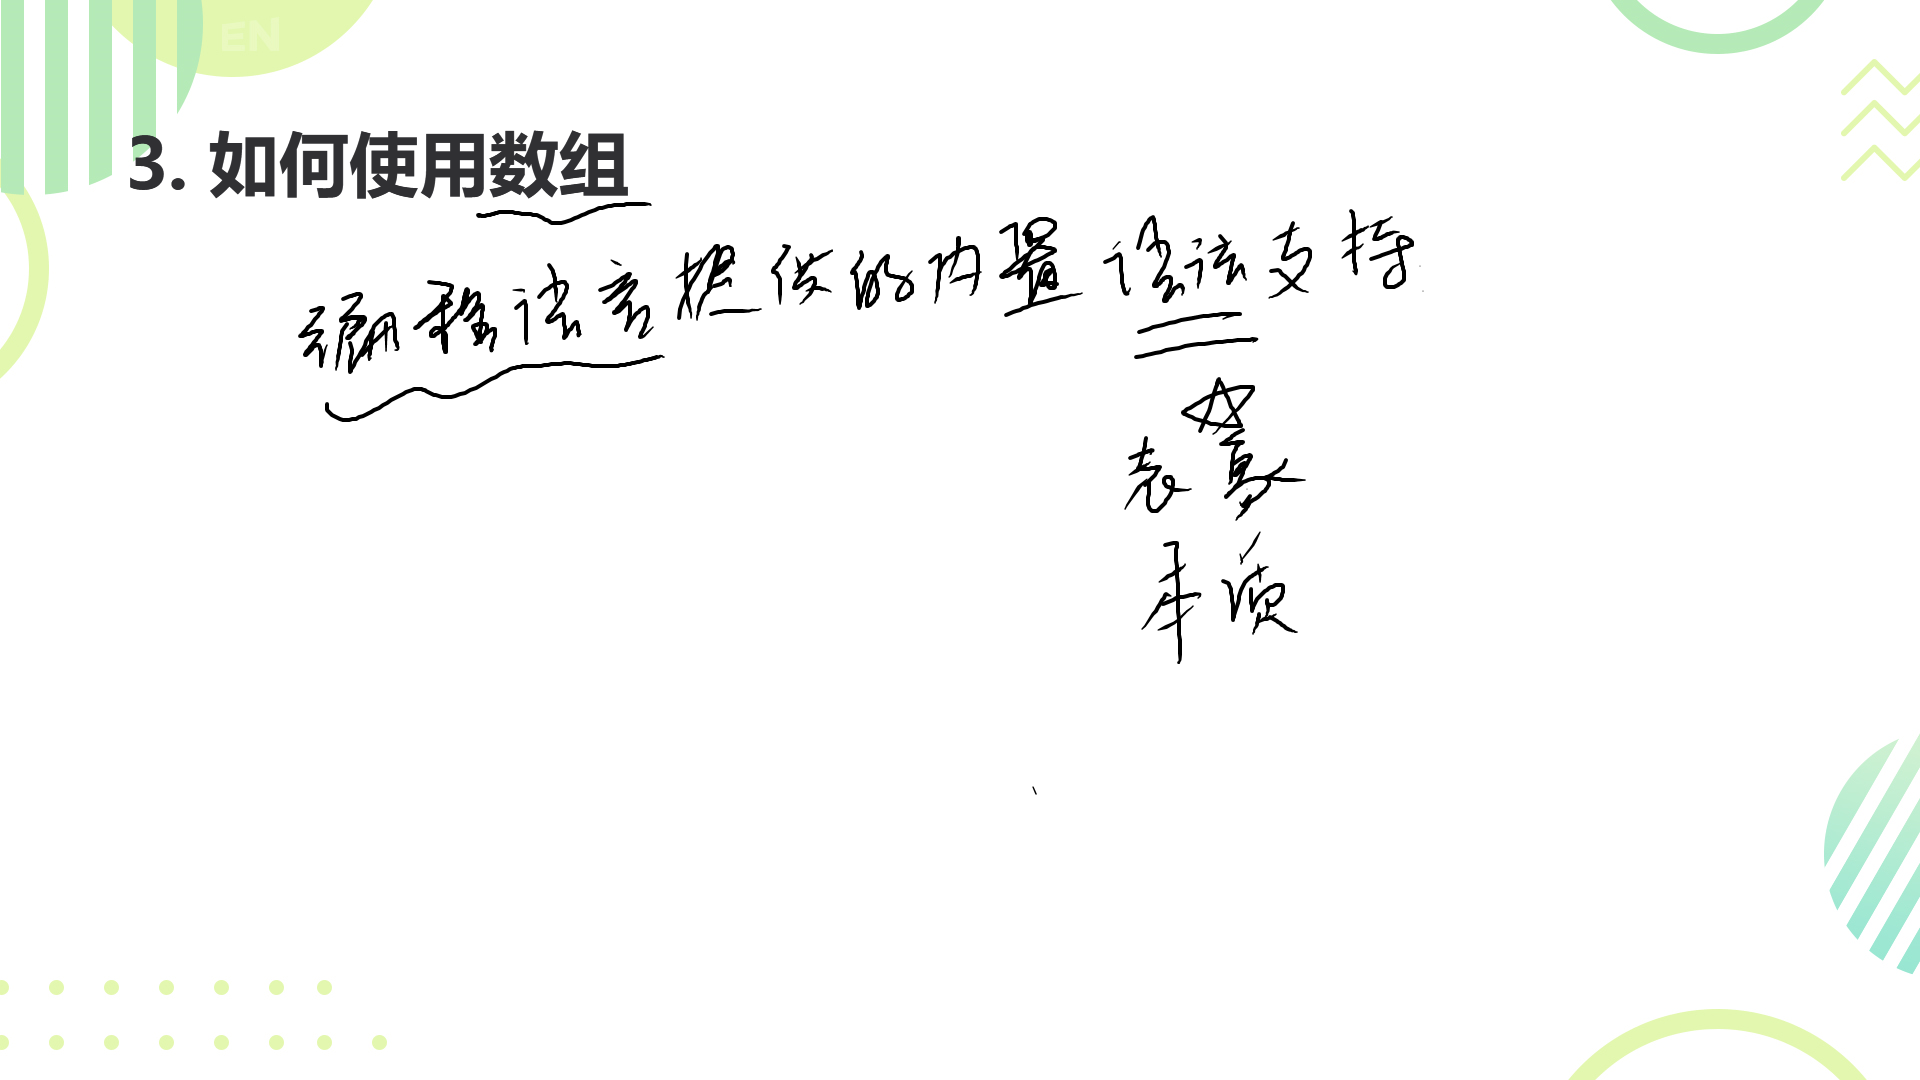 EN
3. 如何使用数组
编程语言提供的内置语法支持
表象
本质